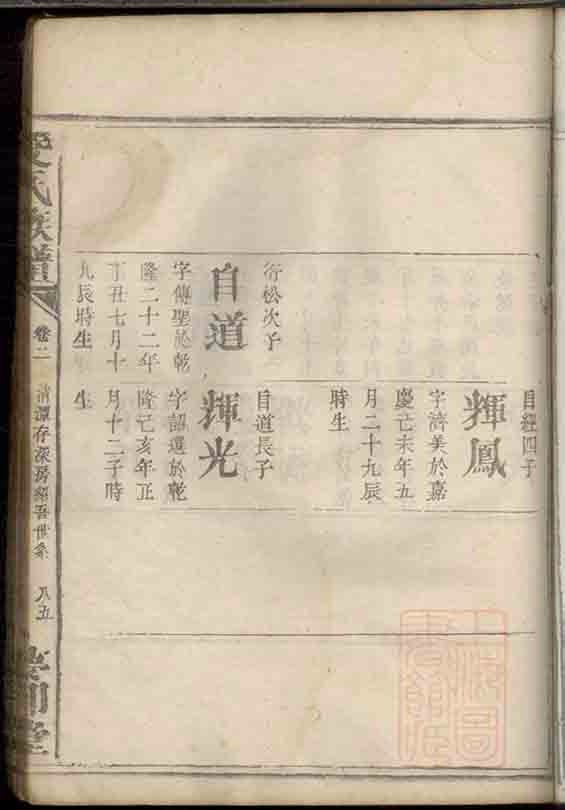 自經四子
輝鳳
字濟美於嘉
慶己未年五
月二十九辰
時生
衍松次子
自道
字傳聖於乾
隆二十二年
丁丑七月十
九辰時生
自道長子
輝光
字詔選於乾
隆己亥年正
月十二子時
生
氏族譜
卷二
清潭存深房紹吾世系
八五
上海圖
書館藏